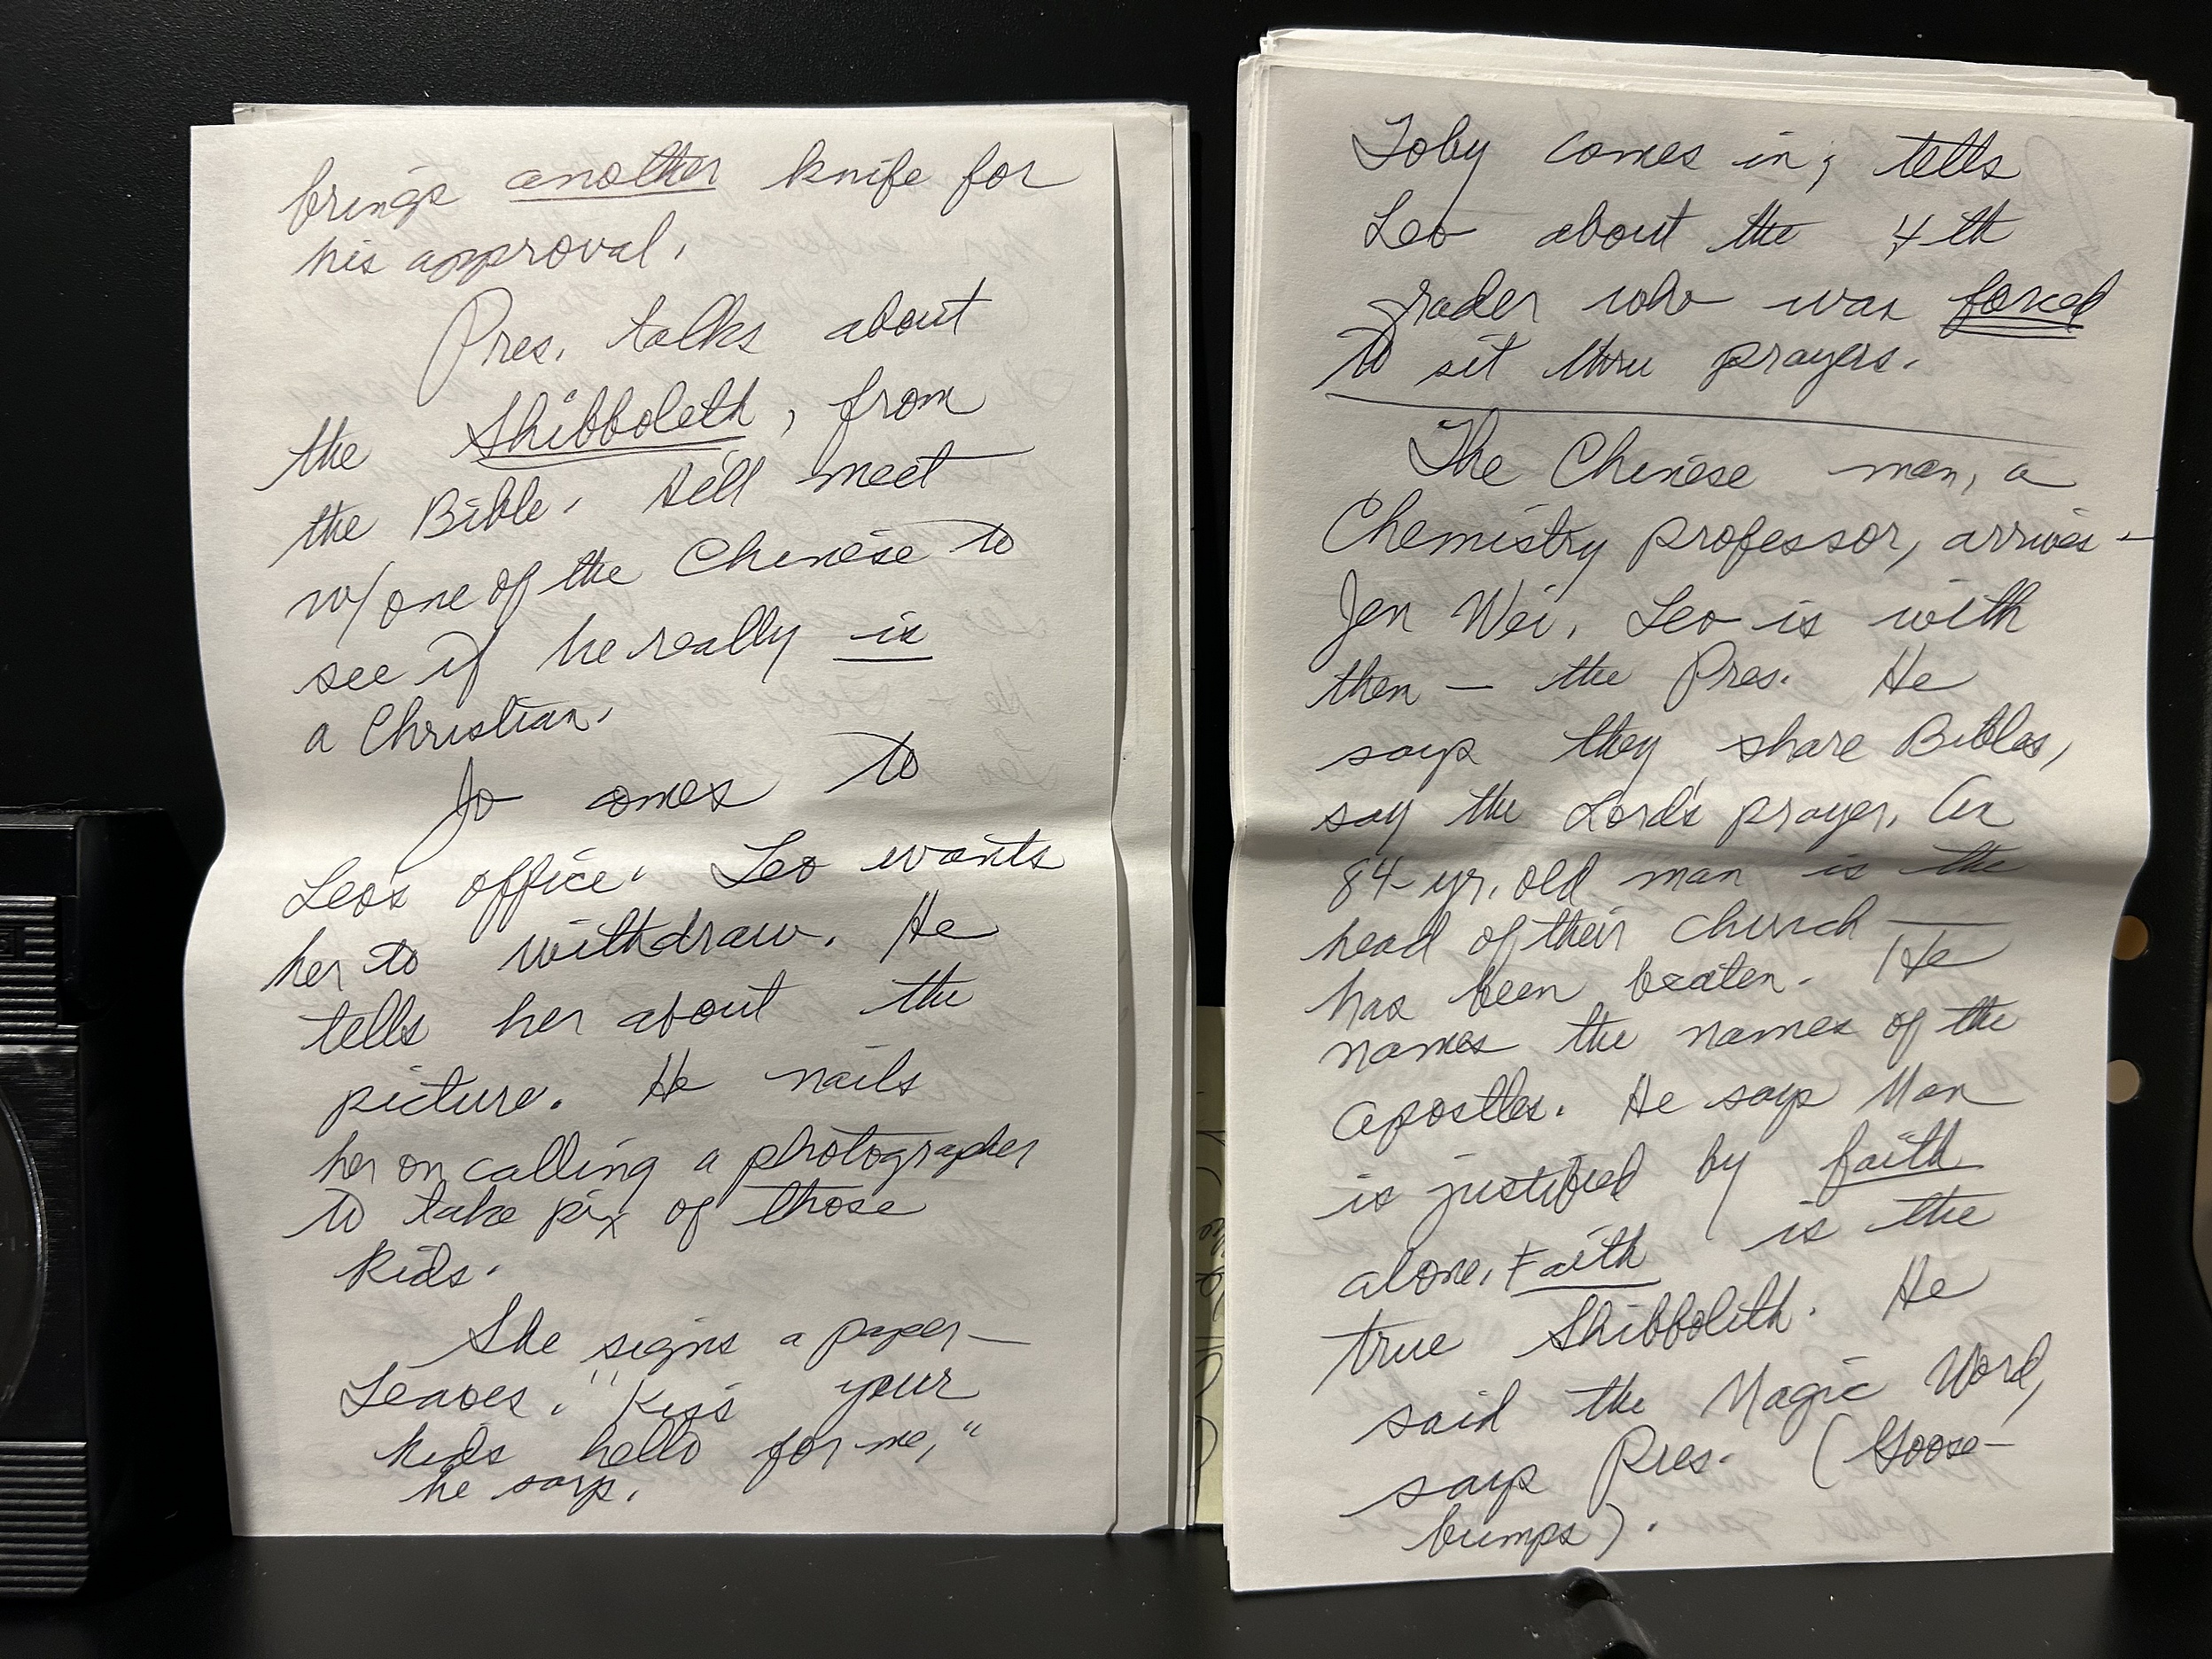 brings another knife for
his approval.
Pres. talks about
the Shibboleth, from
the Bible. He'll meet
w/ one of the Chinese to
see if he really is
a Christian.
Jo comes to
Leo's office. Leo wants
her to withdraw. He
tells her about the
picture. He nails
her on calling a photographer
to take pix of those
kids.
She signs a paper—
Leaves. "Kiss your
kids hello for me,"
he says.
Toby comes in; tells
Leo about the 4th
grader who was forced
to sit thru prayers.
The Chinese man, a
Chemistry professor, arrives—
Jen Wei. Leo is with
then — the Pres. He
says they share Bibles,
say the Lord's prayer. An
84-yr. old man is the
head of their church —
has been beaten. He
names the names of the
apostles. He says Man
is justified by faith
alone. Faith is the
true Shibboleth. He
said the Magic Word,
says Pres. (Goose-
bumps).